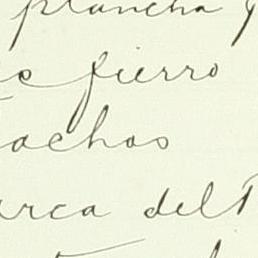 plancha y
de fierro
tachos
arca del